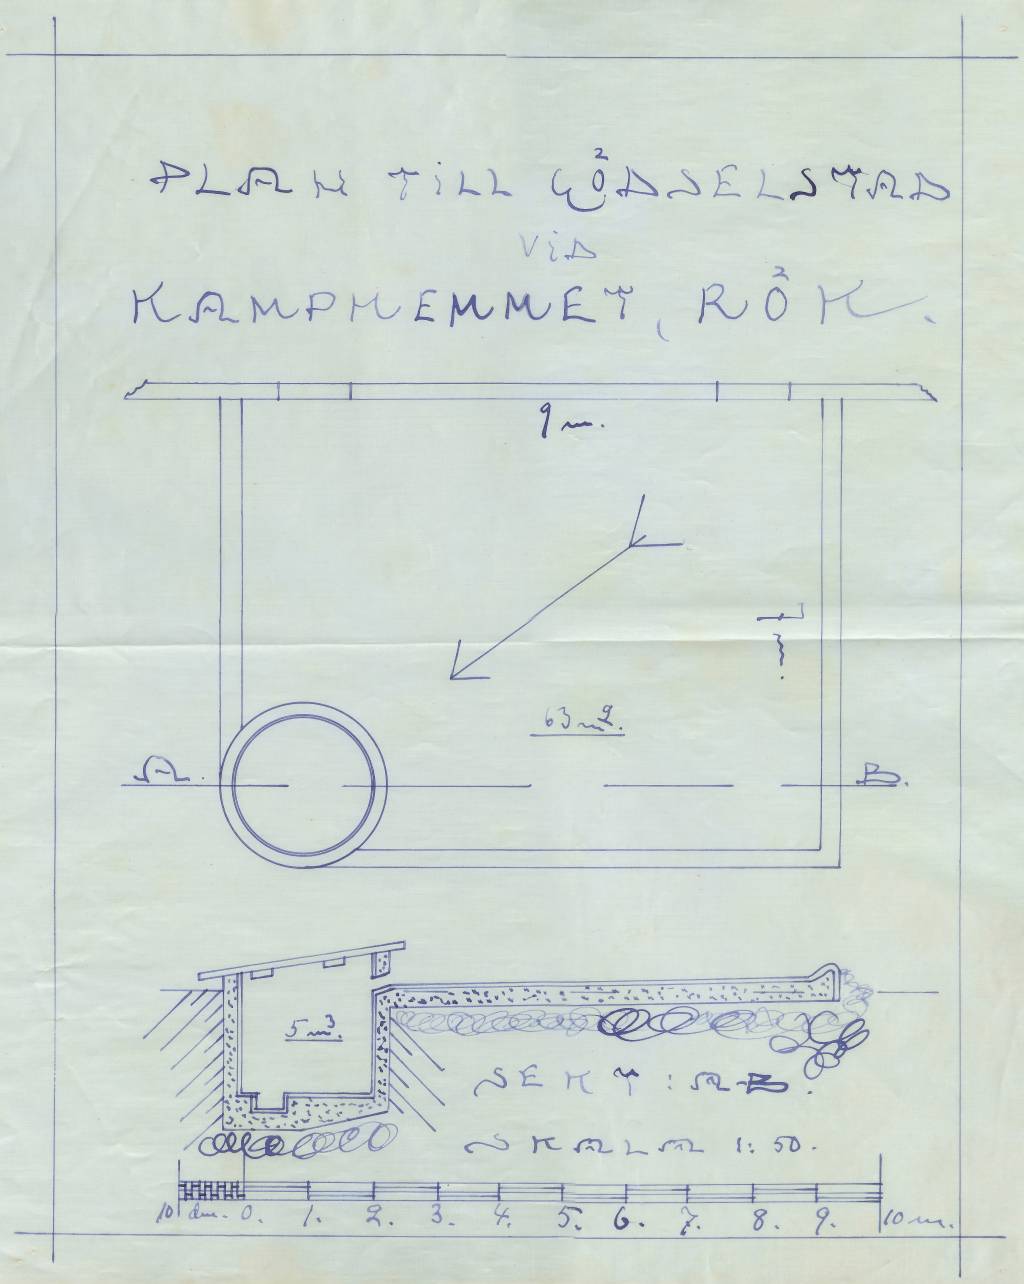 PLAN TILL GÖDSELSTAD
VID
KAMPHEMMET, RÖK.
9 m.
7 m.
63 m2.
A.
B.
5 m3.
SEKT: A-B.
SKALA 1:50.
10 dm. 0. 1. 2. 3. 4. 5. 6. 7. 8. 9. 10 m.